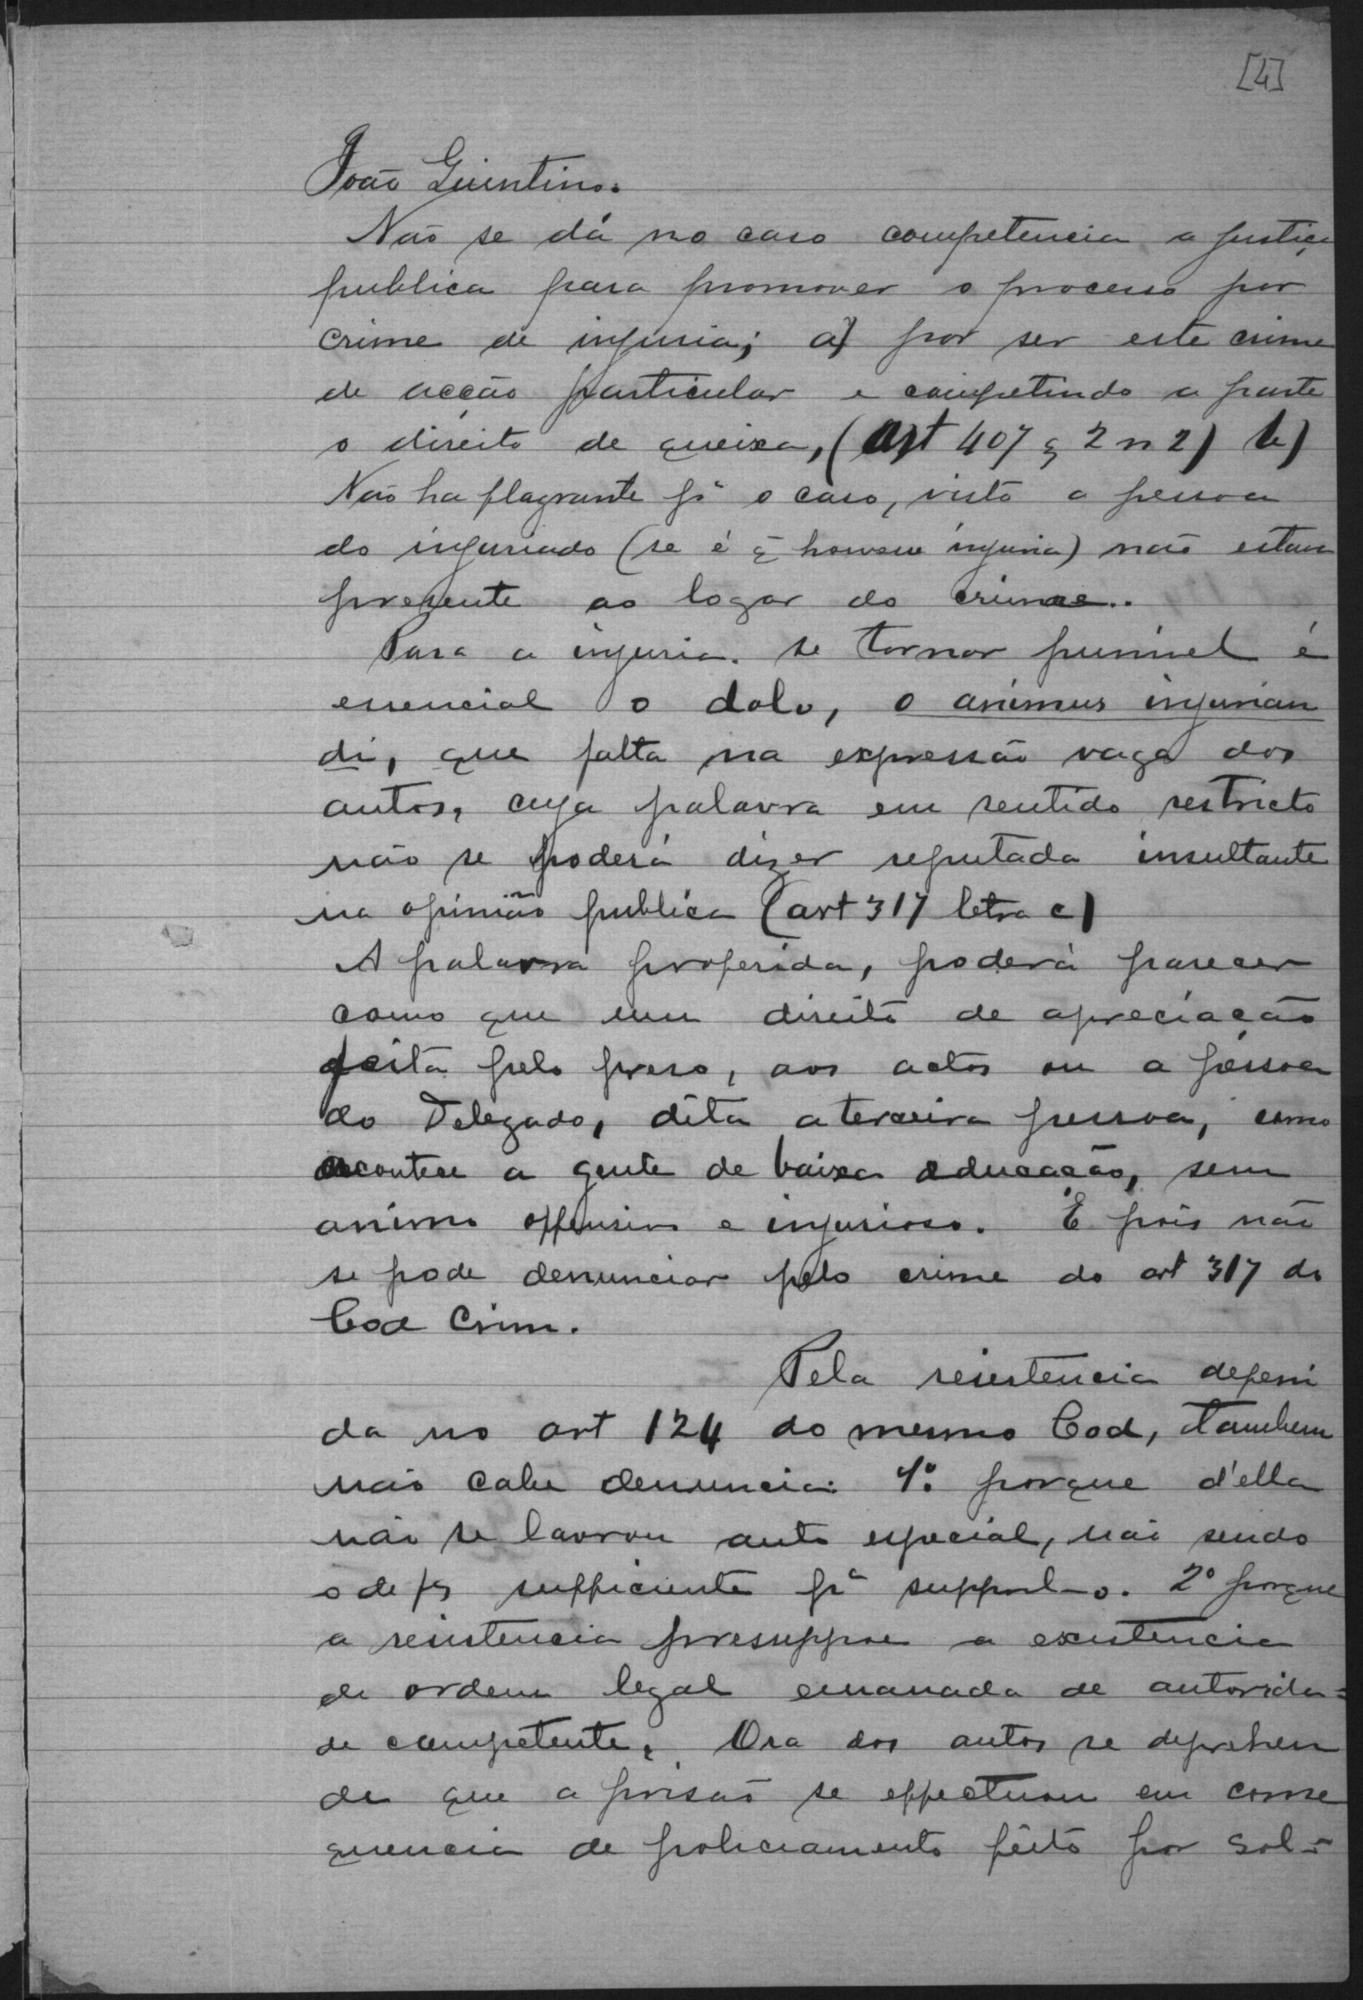 [4]
João Quintino.
Não se dá no caso competencia a justiça
publica para promover o processo por
crime de injuria; a) por ser este crime
de acção particular e competindo a parte
o direito de queixa, (Art 407 § 2 n 2) b)
Não ha flagrante pª o caso, visto a pessoa
do injuriado (se é q houve injuria) não estava
presente ao logar do crime..
Para a injuria. se tornar punivel é
essencial o dolo, o animus injurian
di, que falta na expressão vaga dos
autos, cuja palavra em sentido restricto
não se poderá dizer reputada insultante
na opinião publica (art 317 letra c)
A palavra proferida, poderá parecer
como que um direito de apreciação
feita pelo preso, aos actos ou a pessoa
do Delegado, dita a terceira pessoa, como
acontece a gente de baixa educação, sem
animo offensivo e injurioso. E pois não
se pode denunciar pelo crime do art 317 do
Cod Crim.
Pela resistencia defeni
da no art 124 do mesmo Cod, tambem
não cabe denuncia: 1º porque d'ella
não se lavrou auto especial, não sendo
o de sufficiente pª suppril-o. 2º porque
a resistencia presuppoe a existencia
de ordem legal emanada de autorida=
de competente. Ora dos autos se deprehen
de que a prisão se effectuou em conse
quencia de policiamento feito por sol-